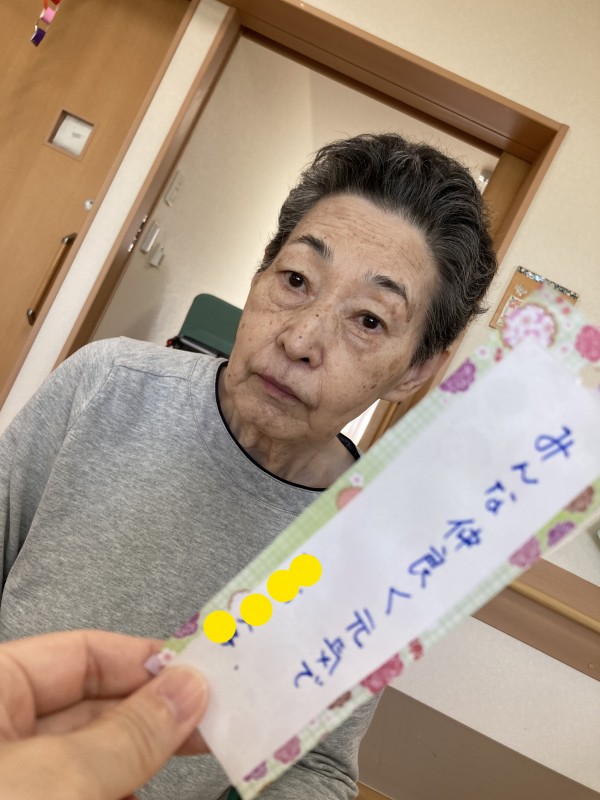 みんな仲良く元気で